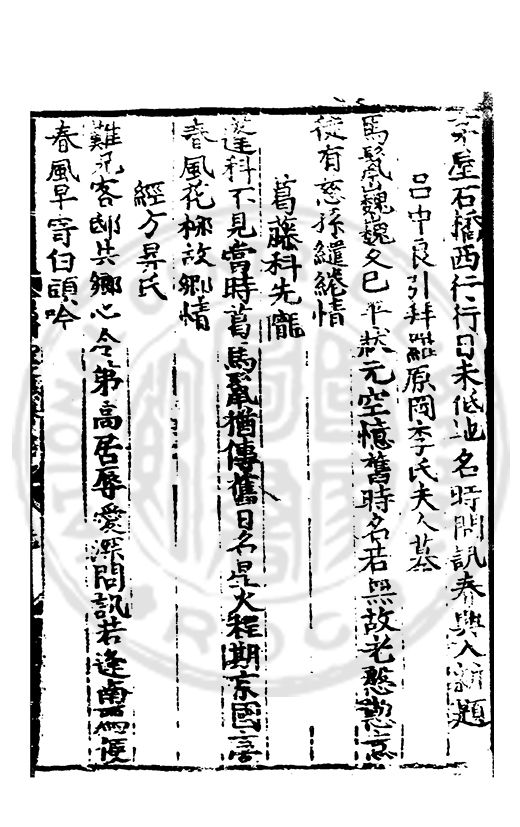 茅屋石橋西行行日未低地名時問訊春興入新題
呂中良引拜羅原岡李氏夫人墓
馬鬛巍巍久已平狀元空憶舊時名若無故老慇懃意
徒有慈孫繾綣情
葛藤科先隴
蓬科不見當時葛馬鬛猶傳舊日名是火程期京國喜
春風花柳故鄉情
經方昇氏
難兄客邸共鄉心令弟高居辱愛深問訊若逢南雪便
春風早寄白頭吟